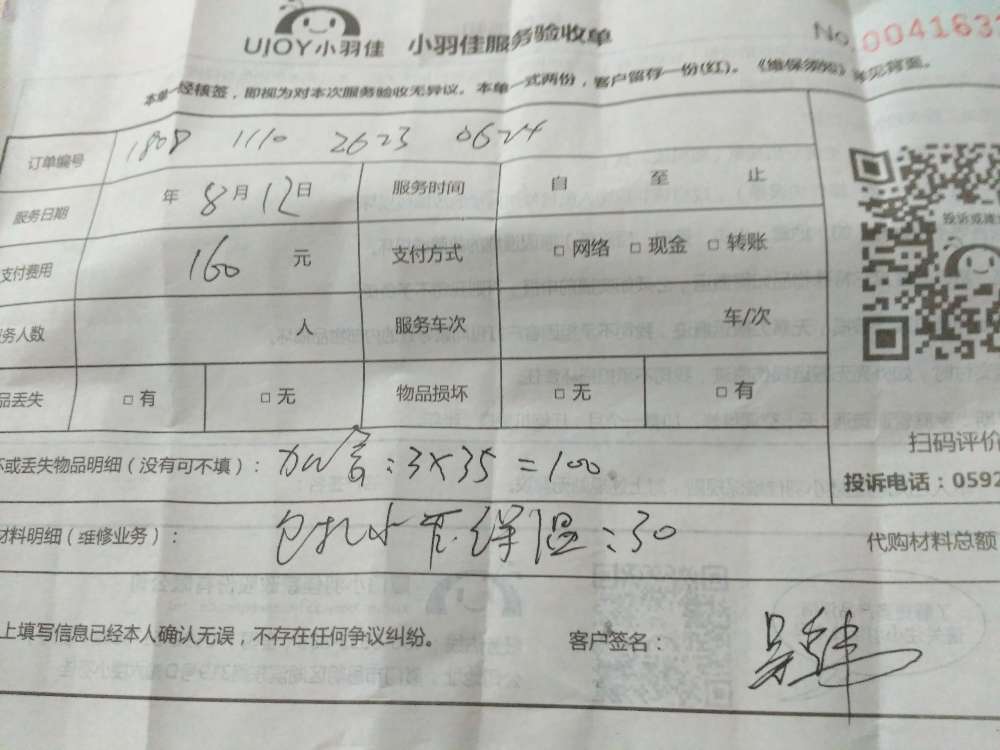 UJOY小羽佳 小羽佳服务验收单 No.004163
本单一经核签，即视为对本次服务验收无异议。本单一式两份，客户留存一份(红)。《维保须知》详见背面。
订单编号 1808 1110 2623 0624
服务日期 年 8月12日 服务时间 自 至 止
支付费用 160 元 支付方式 □ 网络 □ 现金 □ 转账
务人数 人 服务车次 车/次
品丢失 □ 有 □ 无 物品损坏 □ 无 □ 有
投诉或
扫码评价
坏或丢失物品明细（没有可不填）： 3×35=100
投诉电话：0592
材料明细（维修业务）： 包扎 保温：30
代购材料总额
上填写信息已经本人确认无误，不存在任何争议纠纷。 客户签名：